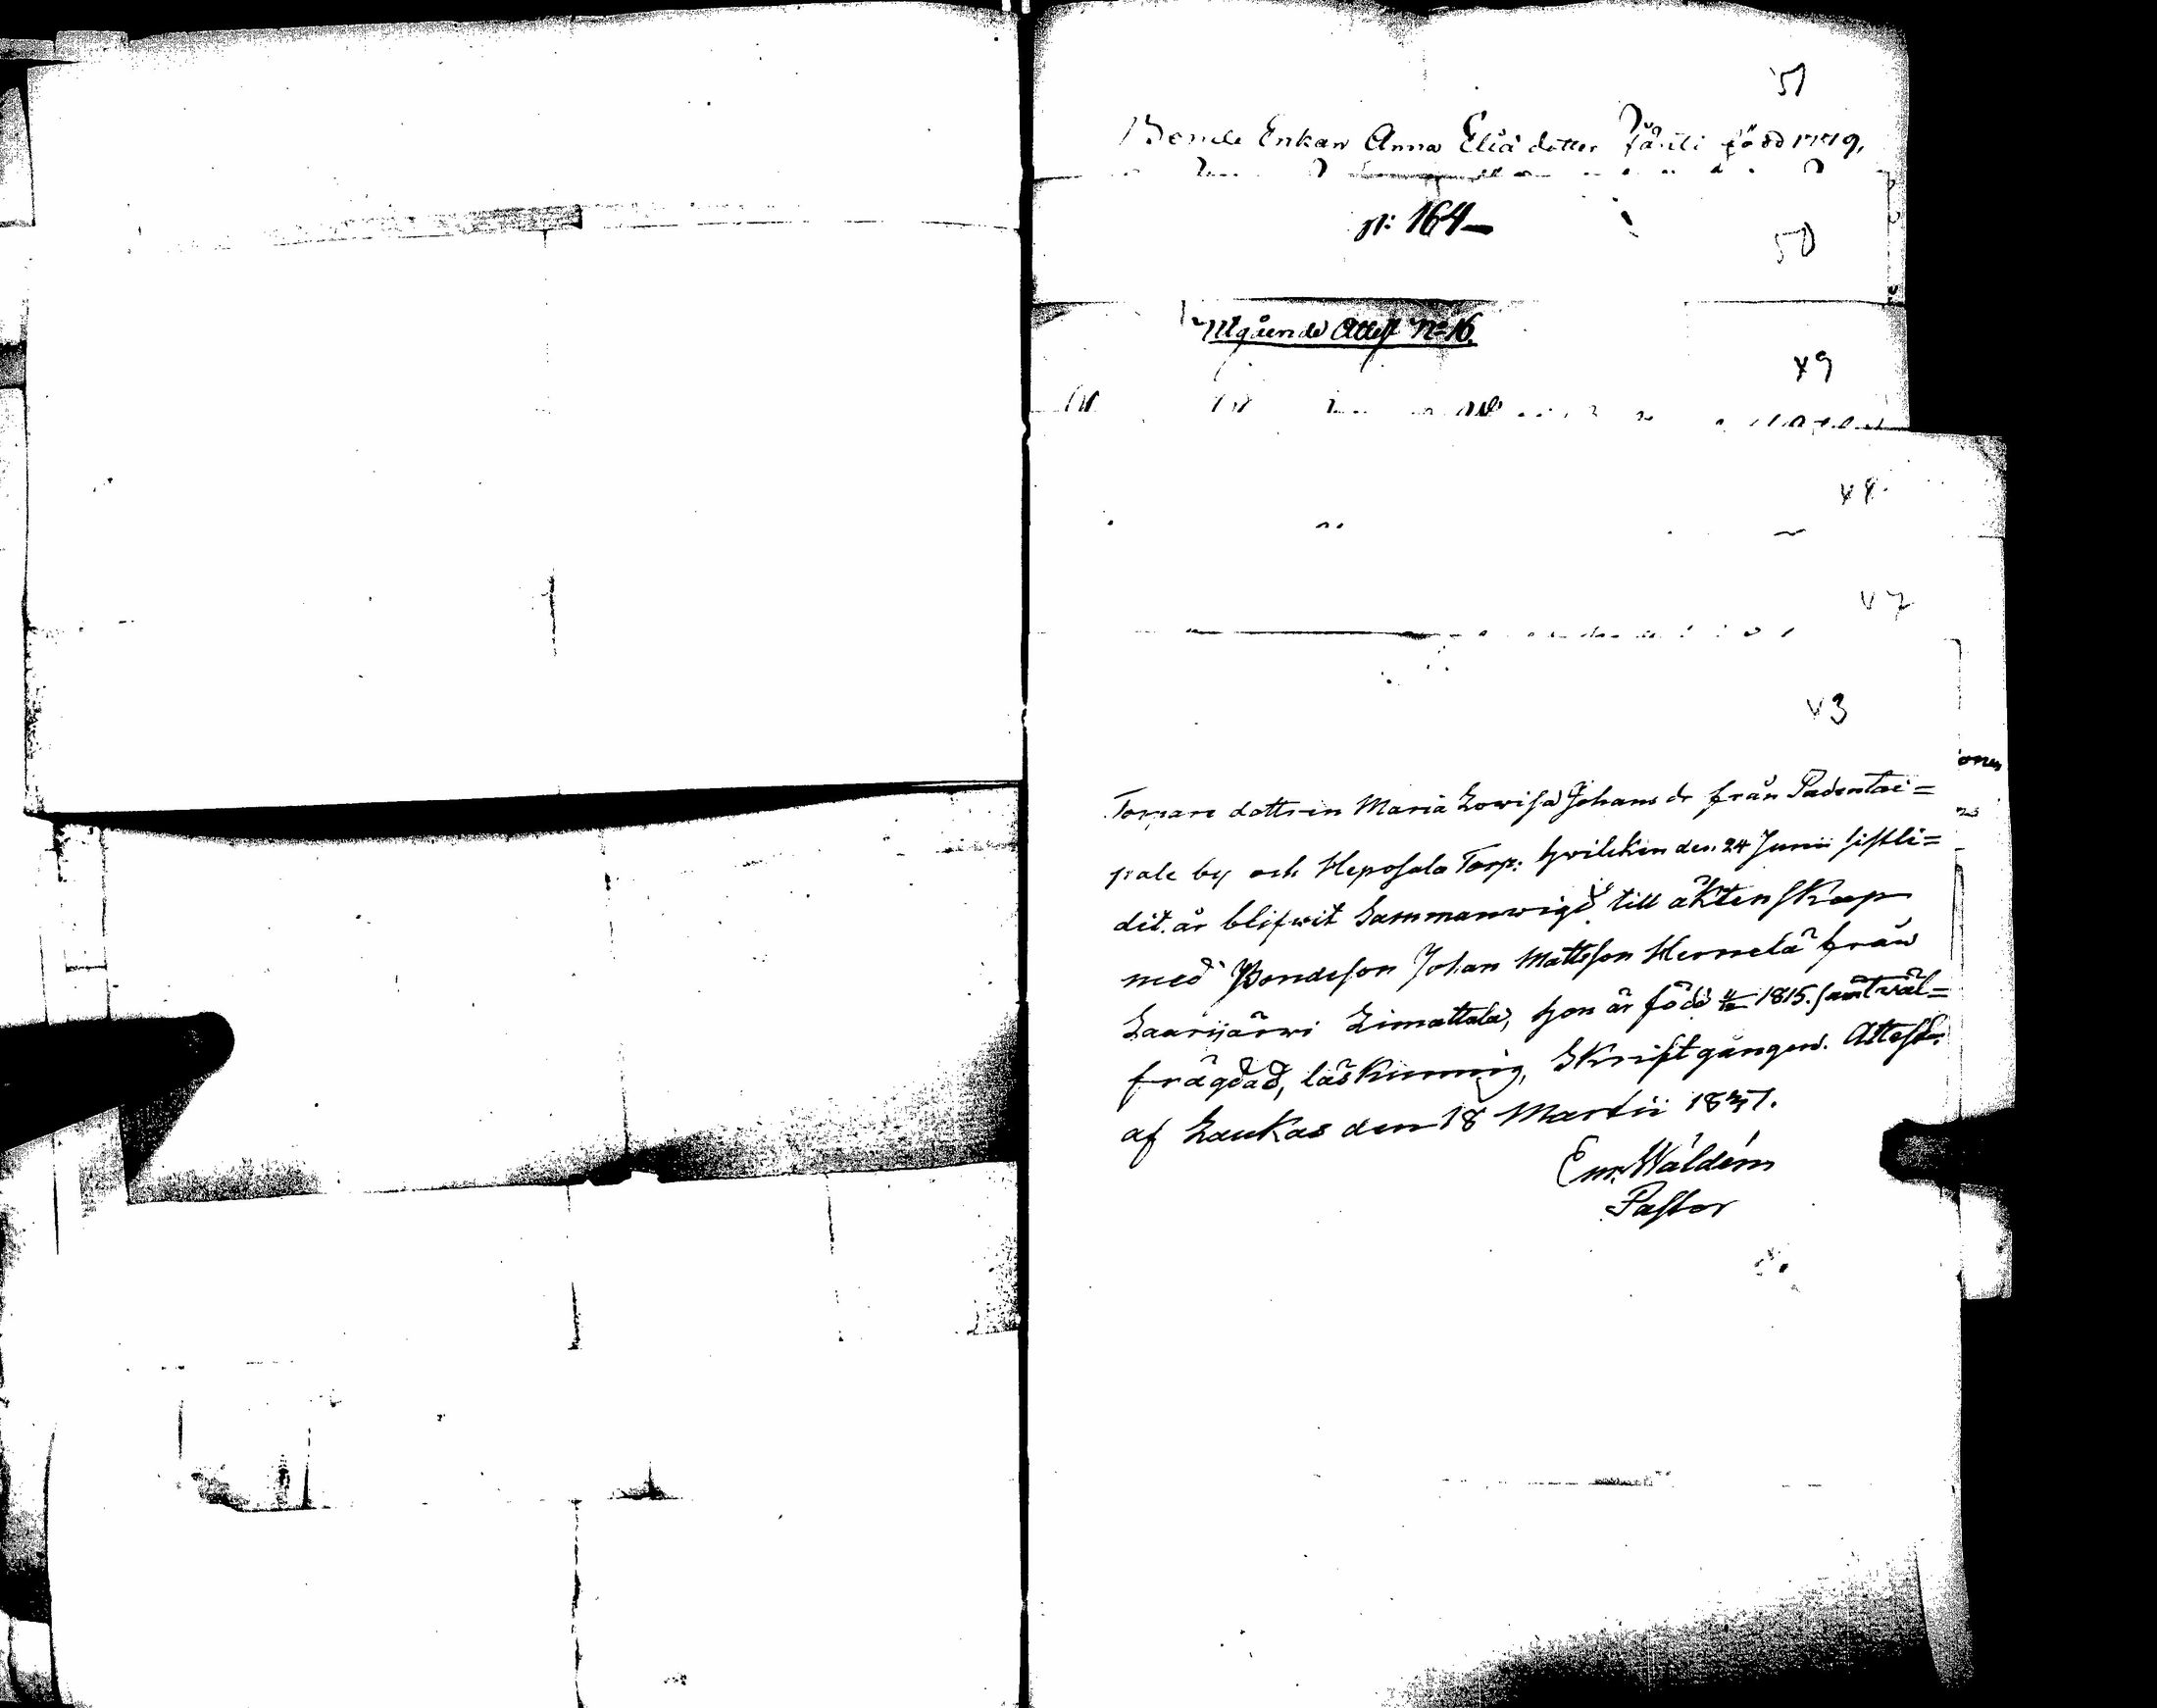 51
Bonde Enkan Anna Eliä dotter född 1779,
p: 164
50
Utgående Attest No 16.
49
48
47
43
onen
Torpare dottren Maria Lowisa Johans dr från Padentai=
pale by och Heposala Torp: hwilcken den 24 Junii sistli=
dit. år blifwit Sammanwigd till äktenskap
med Bondeson Johan Mattsson Hernelä från
Saarijärwi Limattala, hon är född 1815. samt wäl=
frägdad, läskunnig, Skriftgången. Attest.
af Laukas den 18 Martii
Em. Waldéen
Pastor